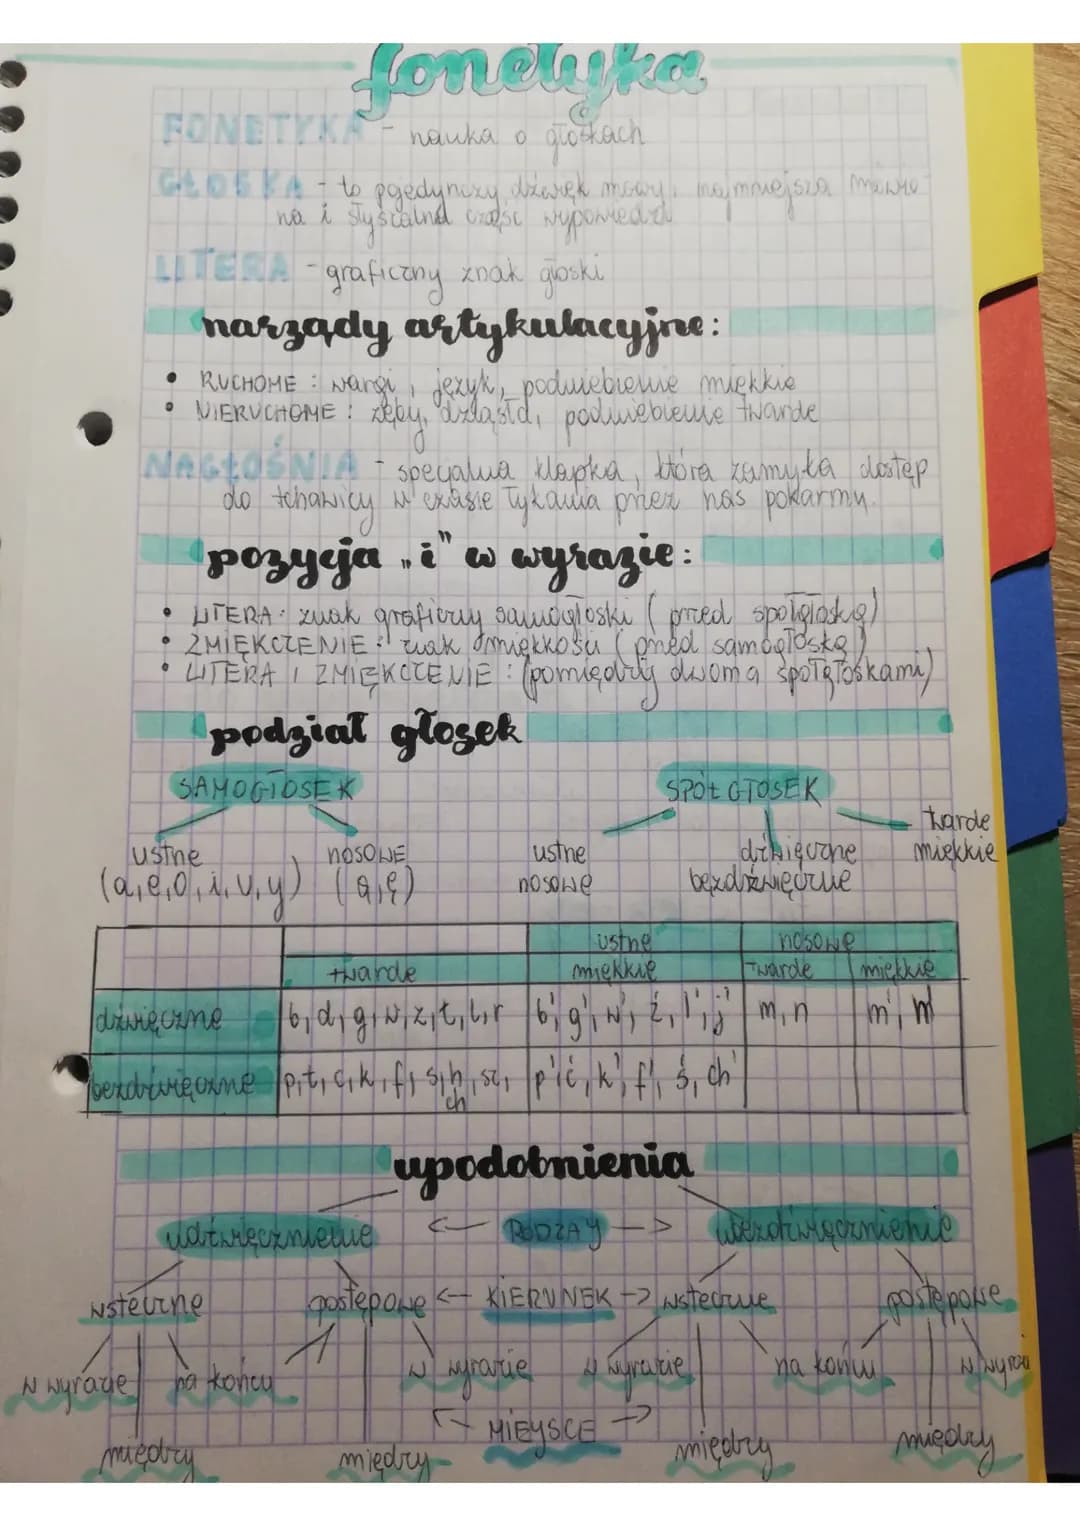 fonetyka
FONETYKA - nauka o głoskach
GŁOSKA - to pojedynczy dźwięk mowy, najmniejsza mówio
na i słyszalna część wypowiedzi
LITERA - graficzny znak głoski
narządy artykulacyjne:
• RUCHOME : wargi, język, podniebienie miękkie
• NIERUCHOME : zęby, dziąsła, podniebienie twarde
NAGŁOŚNIA - specjalna klapka, która zamyka dostęp
do tchawicy w czasie łykania przez nas pokarmu.
pozycja „i" w wyrazie:
• LITERA : znak graficzny samogłoski (przed spółgłoską)
• ZMIĘKCZENIE : znak miękkości (przed samogłoską)
• LITERA I ZMIĘKCZENIE : (pomiędzy dwoma spółgłoskami)
podział głosek
SAMOGŁOSEK SPÓŁGŁOSEK
ustne nosowe ustne dźwięczne twarde
(a,e,o,i,u,y) (ą,ę) nosowe bezdźwięczne miękkie
ustne nosowe
twarde miękkie twarde miękkie
dźwięczne b,d,g,w,z,ł,l,r b',g',w',ź,l',j' m,n m',ń
bezdźwięczne p,t,c,k,f,s,h,sz, p'ć,k',f',ś,ch'
ch
upodobnienia
udźwięcznienie <- RODZAJ -> ubezdźwięcznienie
wsteczne postępowe <- KIERUNEK -> wsteczne postępowe
w wyrazie na końcu w wyrazie w wyrazie na końcu w wyrazi
<- MIEJSCE ->
między między między między